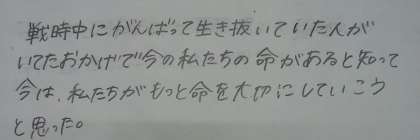 戦時中にがんばって生き抜いていた人が
いてたおかげで今の私たちの命があると知って
今は、私たちがもっと命を大切にしていこう
と思った。